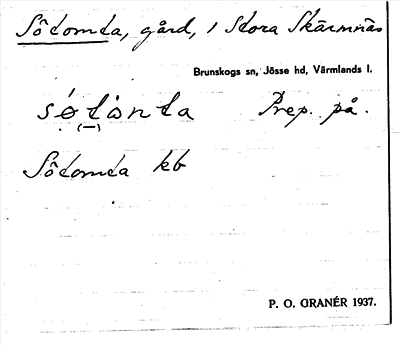 Sôtomta, gård, i Stora Skärmnäs
Brunskogs sn, Jösse hd, Värmlands l.
søtònta Prep. på.
(–)
Sôtomta kb
P. O. GRANÉR 1937.